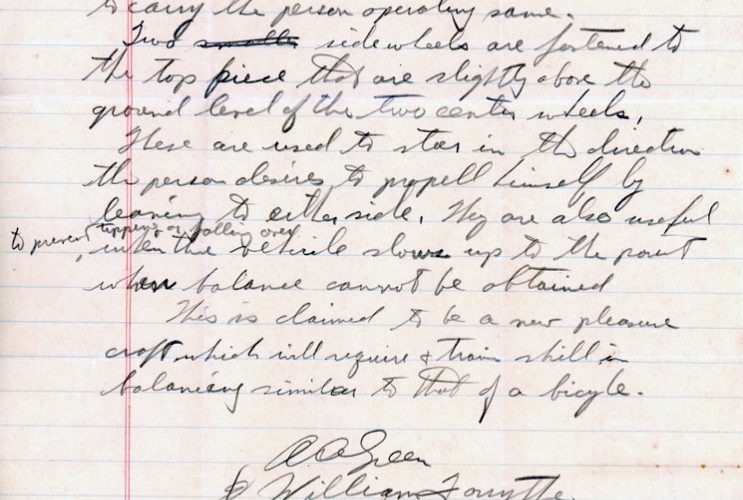 to carry the person operating same.
Two smaller side wheels are fastened to
the top piece that are slightly above the
ground level of the two center wheels,
These are used to steer in the direction
the person desires to propell himself by
leaning to either side. They are also useful
to prevent tipping or falling over
, when the vehicle slows up to the point
when balance cannot be obtained
This is claimed to be a new pleasure
craft which will require & train skill in
balancing similar to that of a bicycle.
A A Green
& William Forsythe.